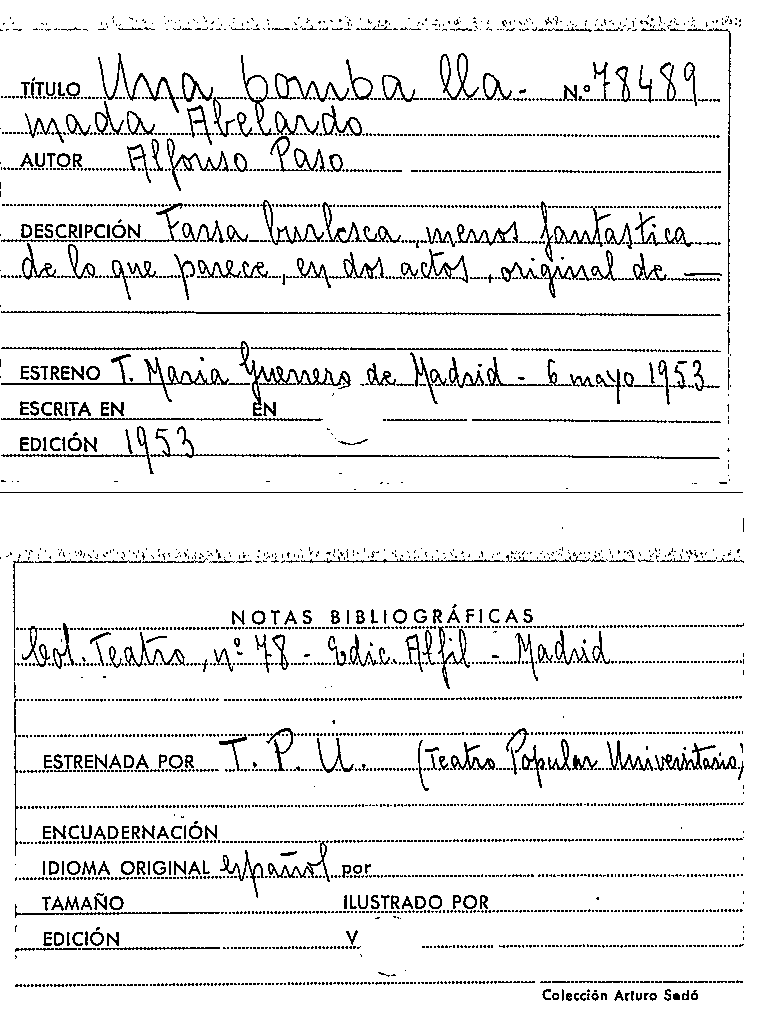 TÍTULO Una bomba lla- N.º 78489
mada Abelardo
AUTOR Alfonso Paso
DESCRIPCIÓN Farsa burlesca, menos fantastica
de lo que parece, en dos actos, original de —
ESTRENO T. Maria Guerrero de Madrid - 6 mayo 1953
ESCRITA EN EN
EDICIÓN 1953
NOTAS BIBLIOGRÁFICAS
Col. Teatro, nº 78 - Edic. Alfil - Madrid
ESTRENADA POR T. P. U. (Teatro Popular Universitario)
ENCUADERNACIÓN
IDIOMA ORIGINAL español por
TAMAÑO ILUSTRADO POR
EDICIÓN V
Colección Arturo Sedó